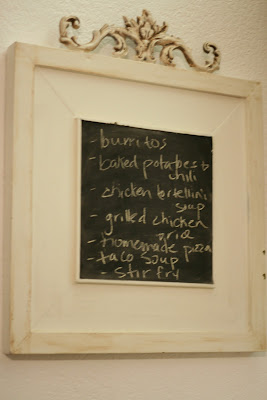 - burritos
- baked potatoes &
chili
- chicken tortellini
soup
- grilled chicken
- homemade pizza
- taco soup
- stir fry